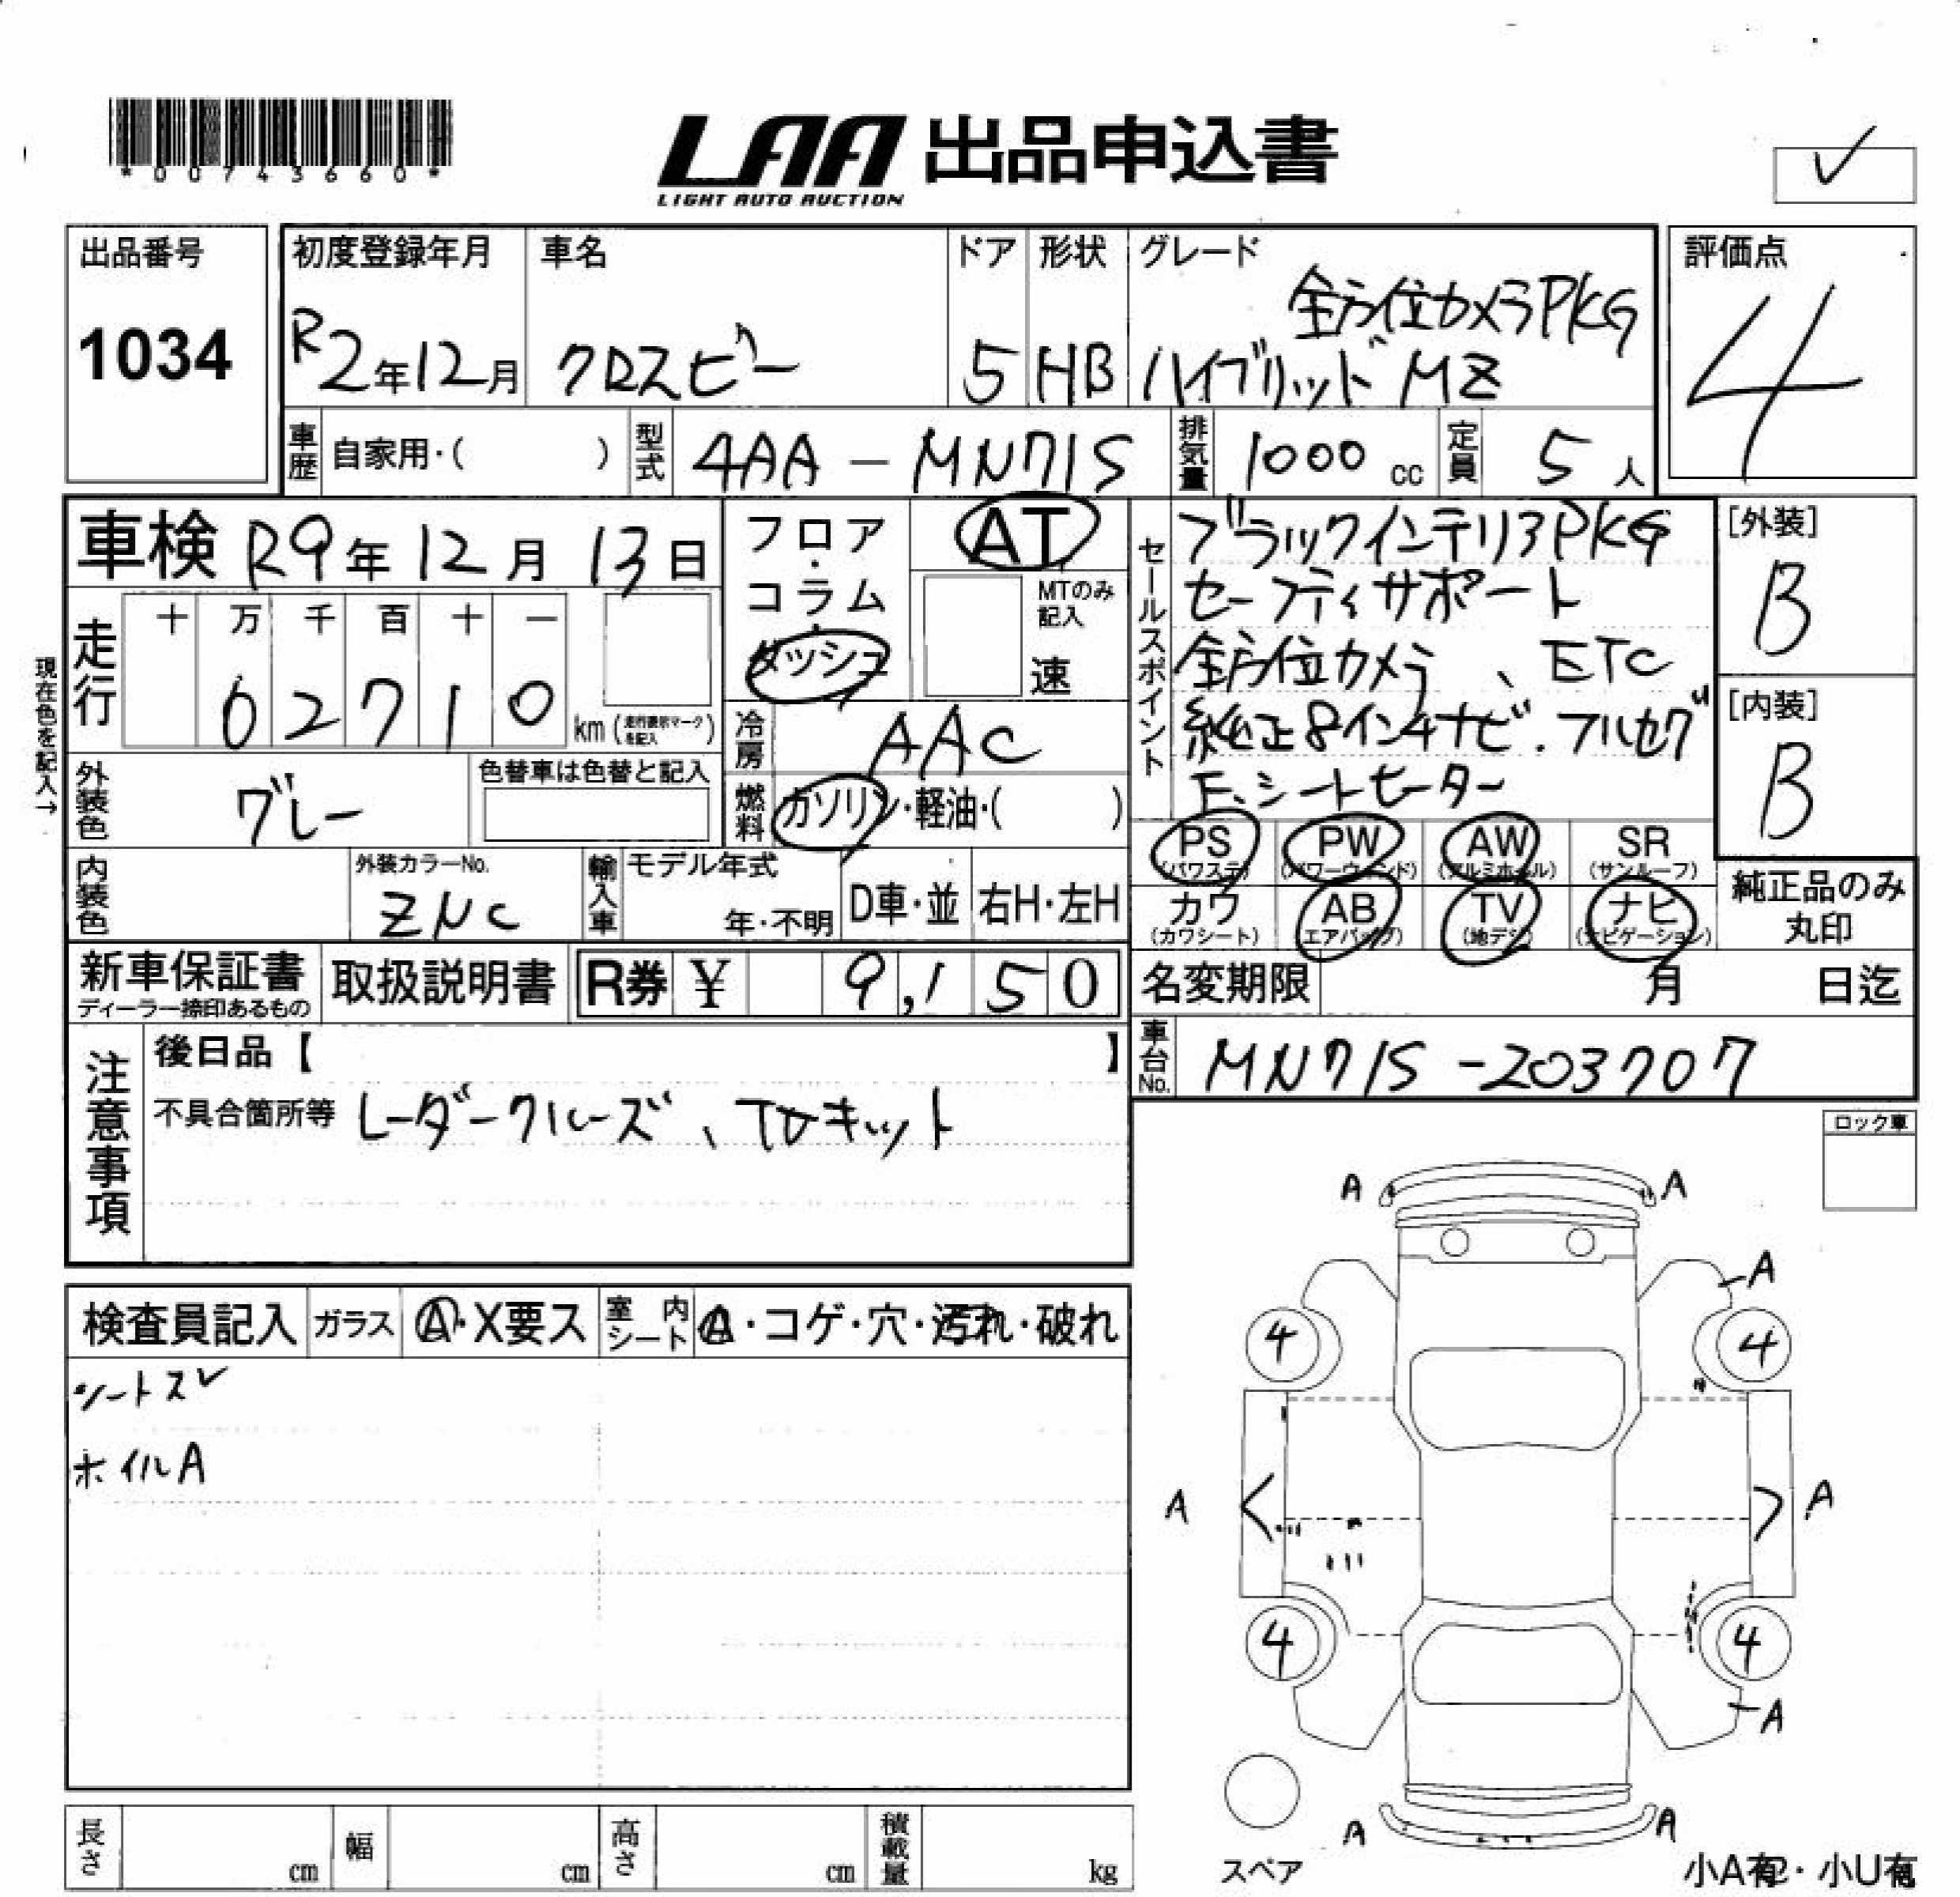 *00743660*
LAA 出品申込書
LIGHT AUTO AUCTION
✓
出品番号
1034
初度登録年月
R2年12月
車名
クロスビー
ドア
5
形状
HB
グレード
全方位カメラPKG
ハイブリッド MZ
評価点
4
車歴 自家用・( )
型式 4AA-MN71S
排気量 1000 cc
定員 5人
車検 R9年12月13日
現在色を記入→
走行
十 万 千 百 十 一
0 2 7 1 0 km (走行表示マークを記入)
フロア・コラム・ダッシュ
AT
MTのみ記入
速
冷房 AAC
燃料 ガソリン・軽油・( )
外装色 グレー
色替車は色替と記入
内装色
外装カラーNo.
ZNC
輸入車 モデル年式
年・不明
D車・並
右H・左H
セールスポイント
ブラックインテリアPKG
セーフティサポート
全方位カメラ、ETC
純正8インチナビ.フルセグ
F.シートヒーター
[外装]
B
[内装]
B
PS (パワステ)
PW (パワーウィンド)
AW (アルミホイル)
SR (サンルーフ)
カワ (カワシート)
AB (エアバッグ)
TV (地デジ)
ナビ (ナビゲーション)
純正品のみ丸印
新車保証書
ディーラー捺印あるもの
取扱説明書
R券 ¥ 9,150
名変期限 月 日迄
車台No. MN71S-203707
注意事項
後日品【 】
不具合箇所等 レーダークルーズ、TVキット
ロック車
検査員記入
ガラス A・X要ス
室内シート A・コゲ・穴・汚れ・破れ
シートスレ
ホイルA
A A
A
4 4
A A
4 4
A
A A
スペア
小A有・小U有
長さ cm
幅 cm
高さ cm
積載量 kg